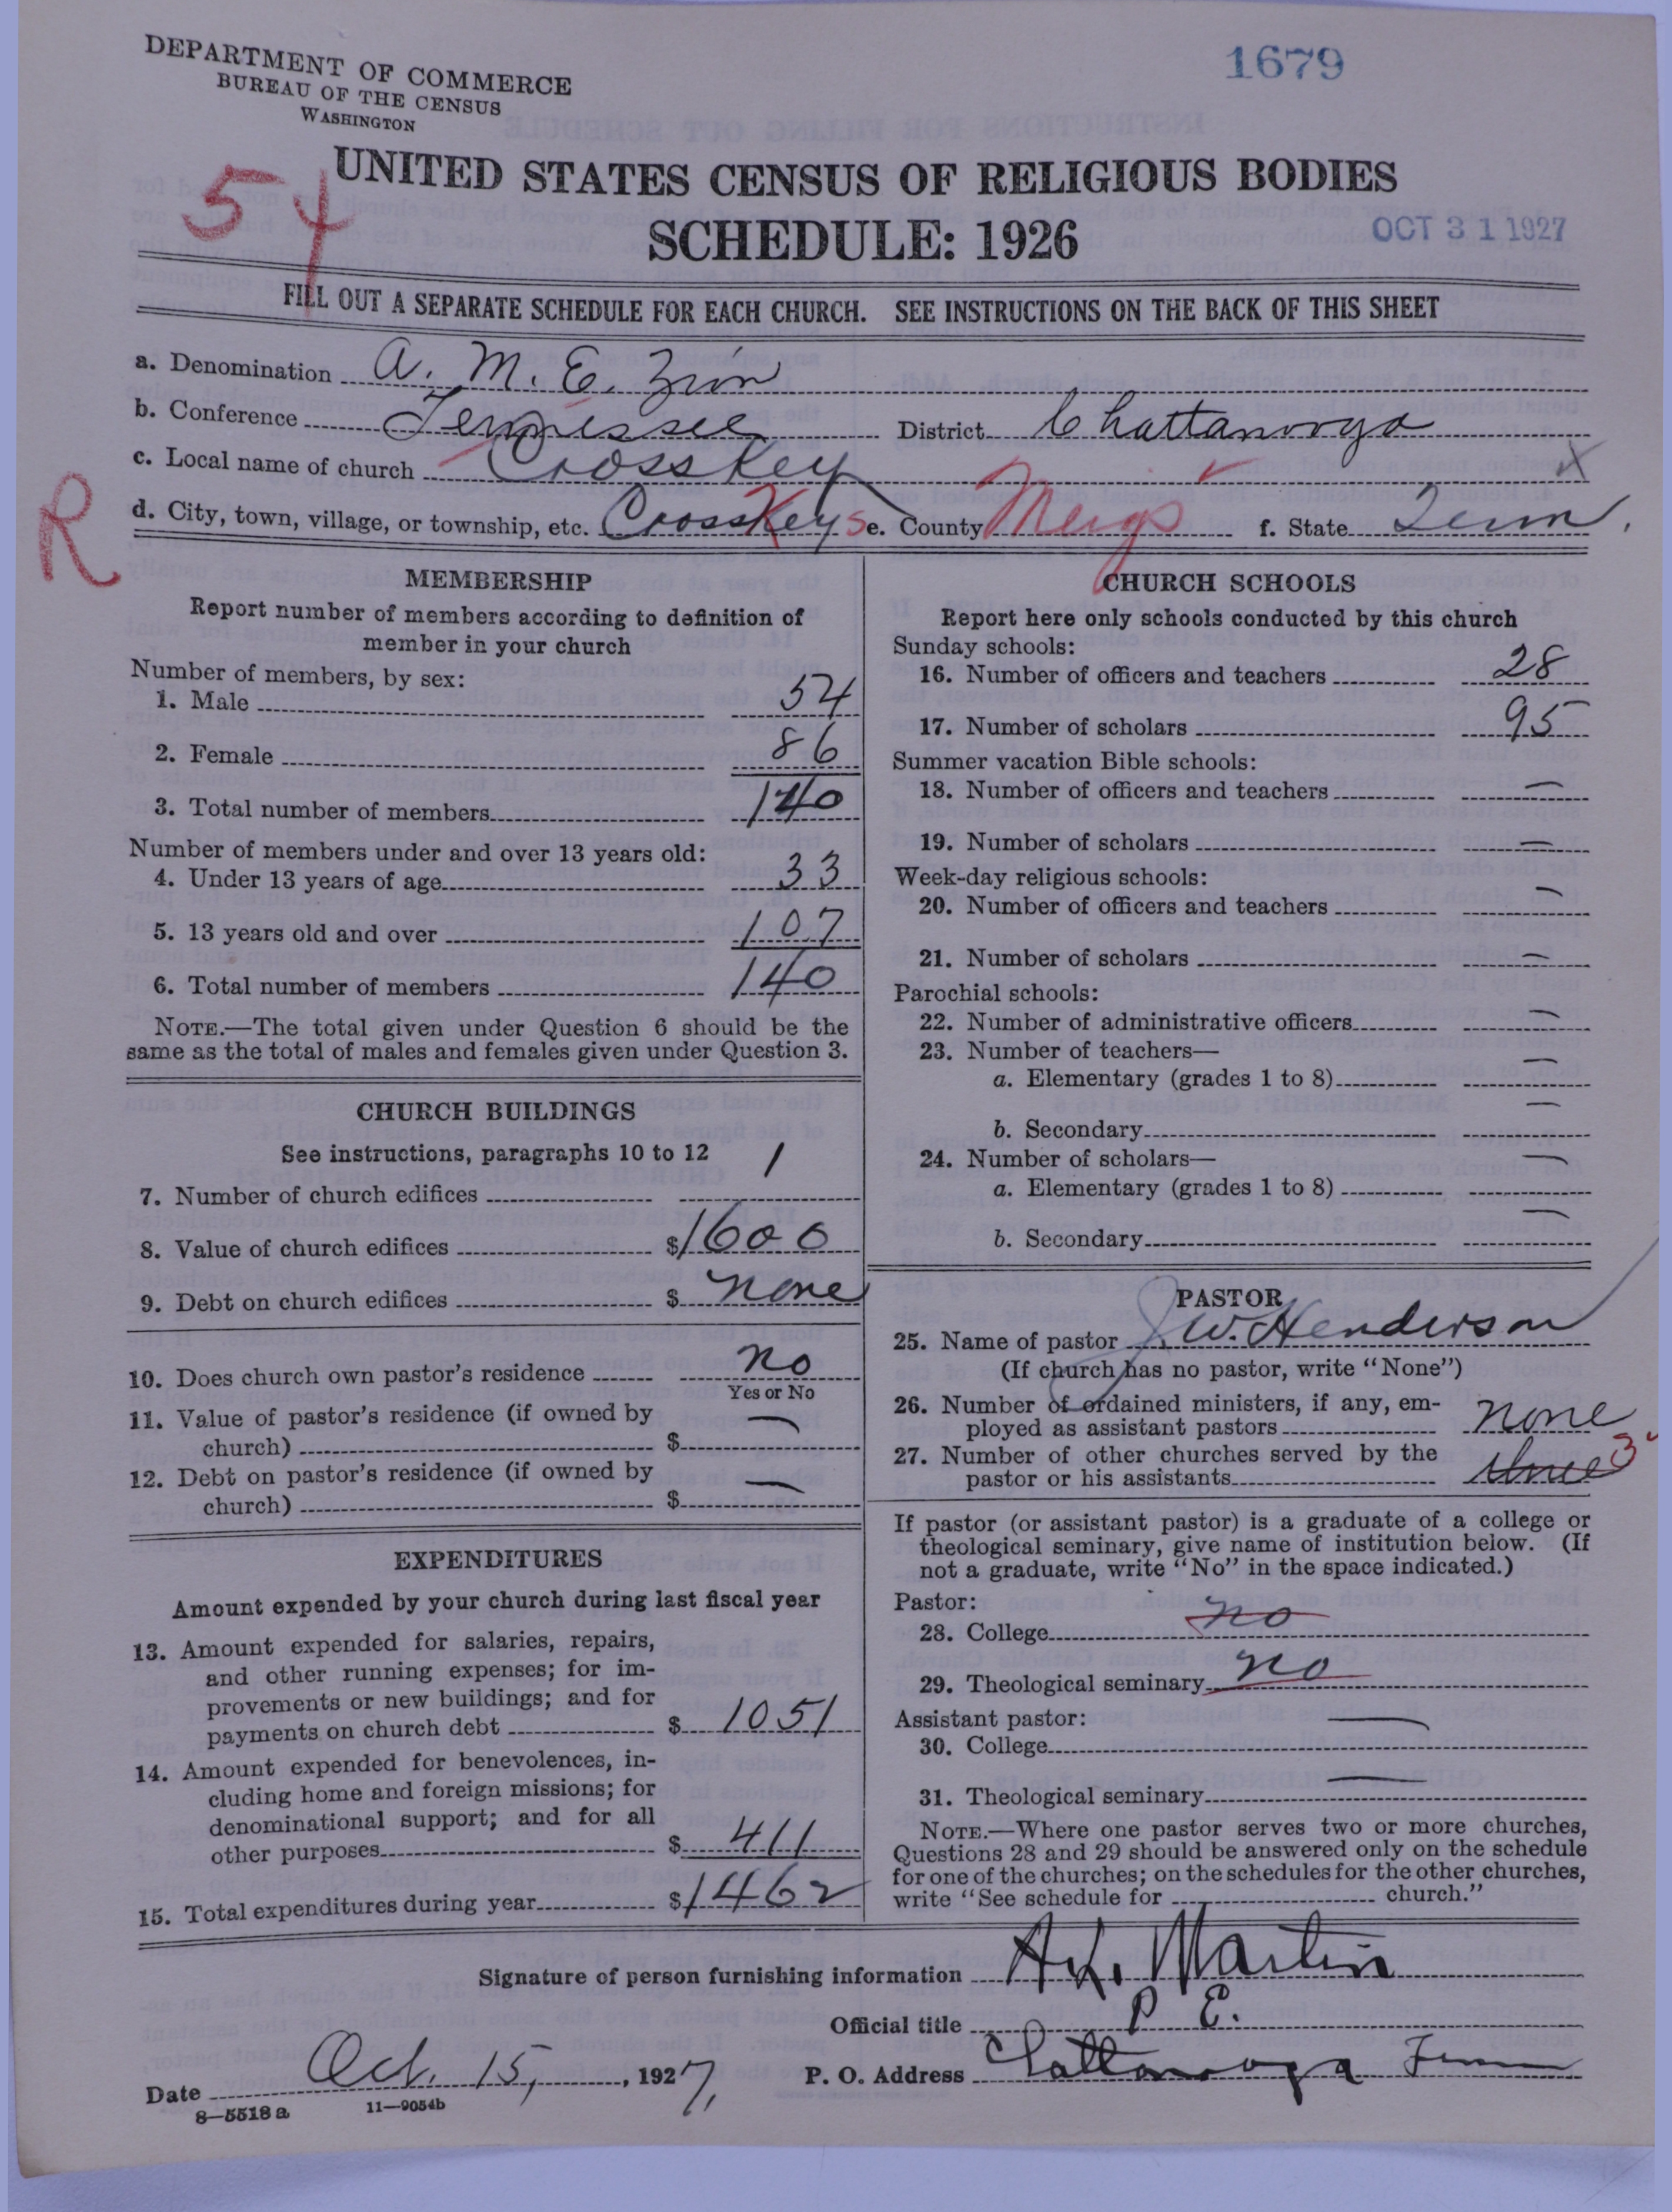 DEPARTMENT OF COMMERCE
BUREAU OF THE CENSUS
WASHINGTON
1679
UNITED STATES CENSUS OF RELIGIOUS BODIES
54
SCHEDULE: 1926
OCT 31 1927
FILL OUT A SEPARATE SCHEDULE FOR EACH CHURCH. SEE INSTRUCTIONS ON THE BACK OF THIS SHEET
a. Denomination A. M. E. Zion
b. Conference Tennessee District Chattanooga
c. Local name of church Cross Key
R
d. City, town, village, or township, etc. Cross Keys e. County Meigs f. State Tenn.
MEMBERSHIP
Report number of members according to definition of
member in your church
Number of members, by sex:
1. Male 54
2. Female 86
3. Total number of members 140
Number of members under and over 13 years old:
4. Under 13 years of age 33
5. 13 years old and over 107
6. Total number of members 140
NOTE.—The total given under Question 6 should be the
same as the total of males and females given under Question 3.
CHURCH BUILDINGS
See instructions, paragraphs 10 to 12
7. Number of church edifices 1
8. Value of church edifices $ 1600
9. Debt on church edifices $ none
10. Does church own pastor's residence no
Yes or No
11. Value of pastor's residence (if owned by
church) $ —
12. Debt on pastor's residence (if owned by
church) $ —
EXPENDITURES
Amount expended by your church during last fiscal year
13. Amount expended for salaries, repairs,
and other running expenses; for im-
provements or new buildings; and for
payments on church debt $ 1051
14. Amount expended for benevolences, in-
cluding home and foreign missions; for
denominational support; and for all
other purposes $ 411
15. Total expenditures during year $ 1462
CHURCH SCHOOLS
Report here only schools conducted by this church
Sunday schools:
16. Number of officers and teachers 28
17. Number of scholars 95
Summer vacation Bible schools:
18. Number of officers and teachers —
19. Number of scholars —
Week-day religious schools:
20. Number of officers and teachers —
21. Number of scholars —
Parochial schools:
22. Number of administrative officers —
23. Number of teachers—
a. Elementary (grades 1 to 8) —
b. Secondary —
24. Number of scholars—
a. Elementary (grades 1 to 8) —
b. Secondary —
PASTOR
25. Name of pastor J. W. Henderson
(If church has no pastor, write "None")
26. Number of ordained ministers, if any, em-
ployed as assistant pastors none
27. Number of other churches served by the
pastor or his assistants three 3
If pastor (or assistant pastor) is a graduate of a college or
theological seminary, give name of institution below. (If
not a graduate, write "No" in the space indicated.)
Pastor:
28. College no
29. Theological seminary no
Assistant pastor:
30. College —
31. Theological seminary —
NOTE.—Where one pastor serves two or more churches,
Questions 28 and 29 should be answered only on the schedule
for one of the churches; on the schedules for the other churches,
write "See schedule for church."
Signature of person furnishing information A. L. Martin
Official title P. E.
Date Oct. 15, 1927, P. O. Address Chattanooga Tenn
8—5518 a 11—9054b